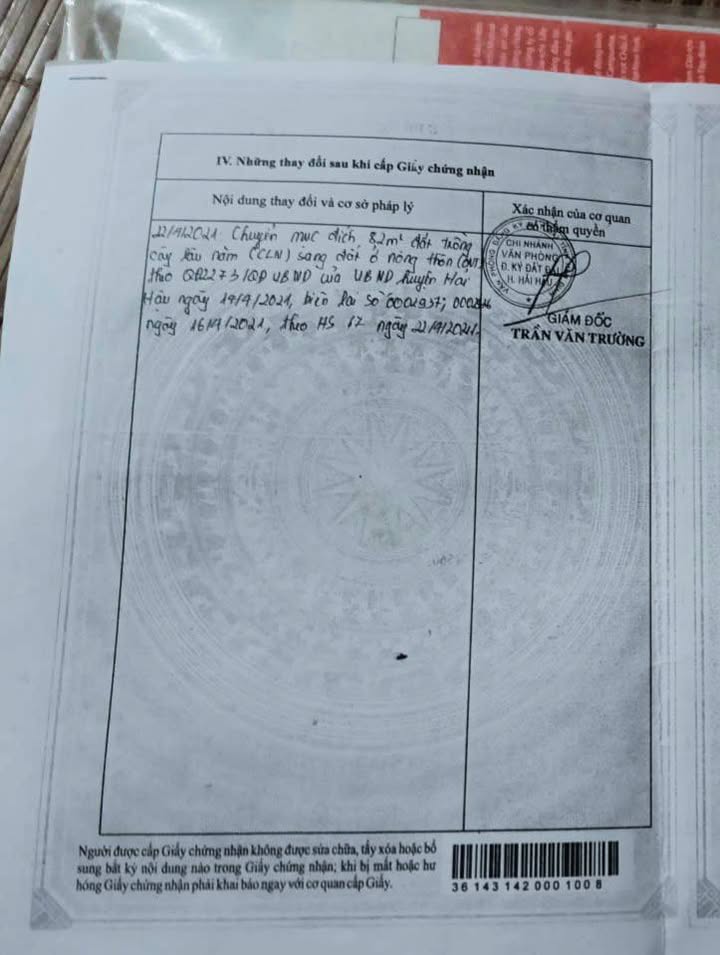 IV. Những thay đổi sau khi cấp Giấy chứng nhận
Nội dung thay đổi và cơ sở pháp lý
Xác nhận của cơ quan
có thẩm quyền
22/4/2021. Chuyển mục đích 82m² đất trồng
cây lâu năm (CLN) sang đất ở nông thôn (ONT)
theo QĐ2273/QĐ UBND của UBND huyện Hải
Hậu ngày 14/4/2021, biên lai số 0001937;
ngày 16/4/2021, theo HS ngày 22/4/2021.
CHI NHÁNH
VĂN PHÒNG
Đ. KÝ ĐẤT ĐAI
H. HẢI HẬU
GIÁM ĐỐC
TRẦN VĂN TRƯỜNG
Người được cấp Giấy chứng nhận không được sửa chữa, tẩy xóa hoặc bổ
sung bất kỳ nội dung nào trong Giấy chứng nhận; khi bị mất hoặc hư
hỏng Giấy chứng nhận phải khai báo ngay với cơ quan cấp Giấy.
36 143 142 000 100 8